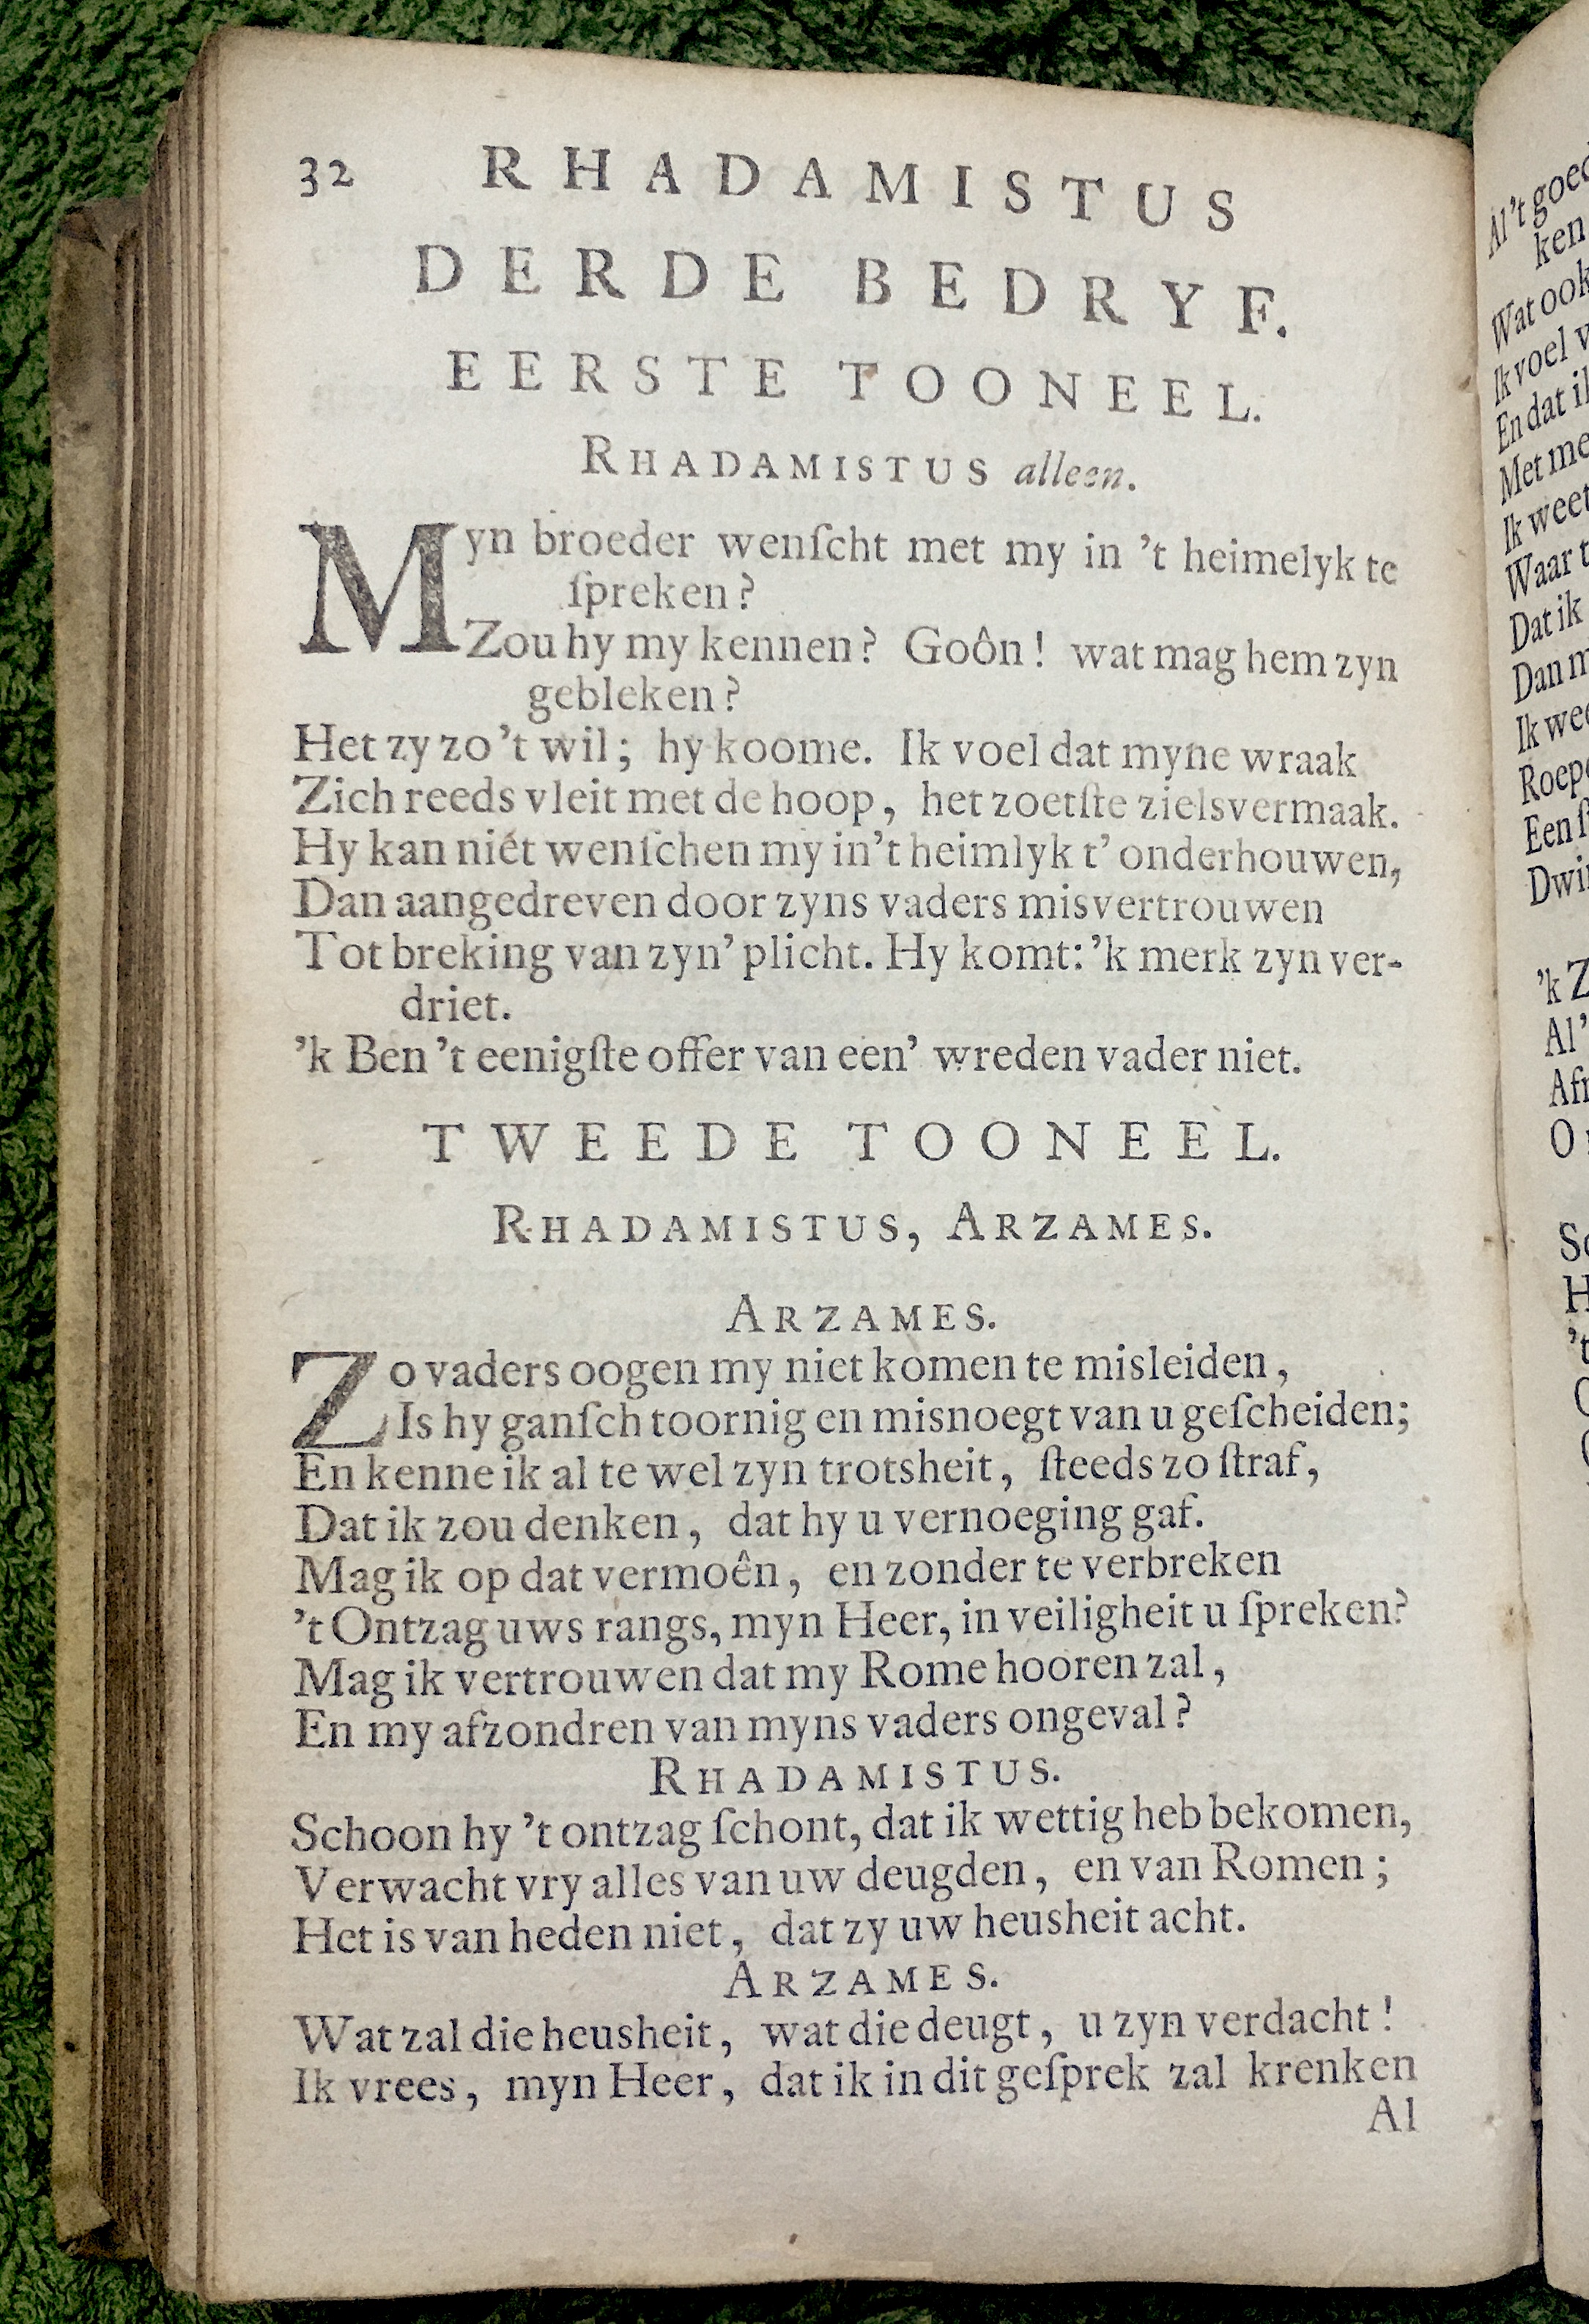 32 RHADAMISTUS
DERDE BEDRYF.
EERSTE TOONEEL.
RHADAMISTUS alleen.
Myn broeder wenſcht met my in ’t heimelyk te
ſpreken?
Zou hy my kennen? Goôn! wat mag hem zyn
gebleken?
Het zy zo ’t wil; hy koome. Ik voel dat myne wraak
Zich reeds vleit met de hoop, het zoetſte zielsvermaak.
Hy kan niét wenſchen my in’t heimlyk t’ onderhouwen,
Dan aangedreven door zyns vaders misvertrouwen
Tot breking van zyn’ plicht. Hy komt: ’k merk zyn ver-
driet.
’k Ben ’t eenigſte offer van een’ wreden vader niet.
TWEEDE TOONEEL.
RHADAMISTUS, ARZAMES.
ARZAMES.
Zo vaders oogen my niet komen te misleiden,
Is hy ganſch toornig en misnoegt van u geſcheiden;
En kenne ik al te wel zyn trotsheit, ſteeds zo ſtraf,
Dat ik zou denken, dat hy u vernoeging gaf.
Mag ik op dat vermoên, en zonder te verbreken
’t Ontzag uws rangs, myn Heer, in veiligheit u ſpreken?
Mag ik vertrouwen dat my Rome hooren zal,
En my afzondren van myns vaders ongeval?
RHADAMISTUS.
Schoon hy ’t ontzag ſchont, dat ik wettig heb bekomen,
Verwacht vry alles van uw deugden, en van Romen;
Het is van heden niet, dat zy uw heusheit acht.
ARZAMES.
Wat zal die heusheit, wat die deugt, u zyn verdacht!
Ik vrees, myn Heer, dat ik in dit geſprek zal krenken
Al
Al ’t
ken
Wat ook
Ik voel
En dat
Met
Ik weet
Waar
Dat ik
Dan
Ik
Een
’k
Al’
O